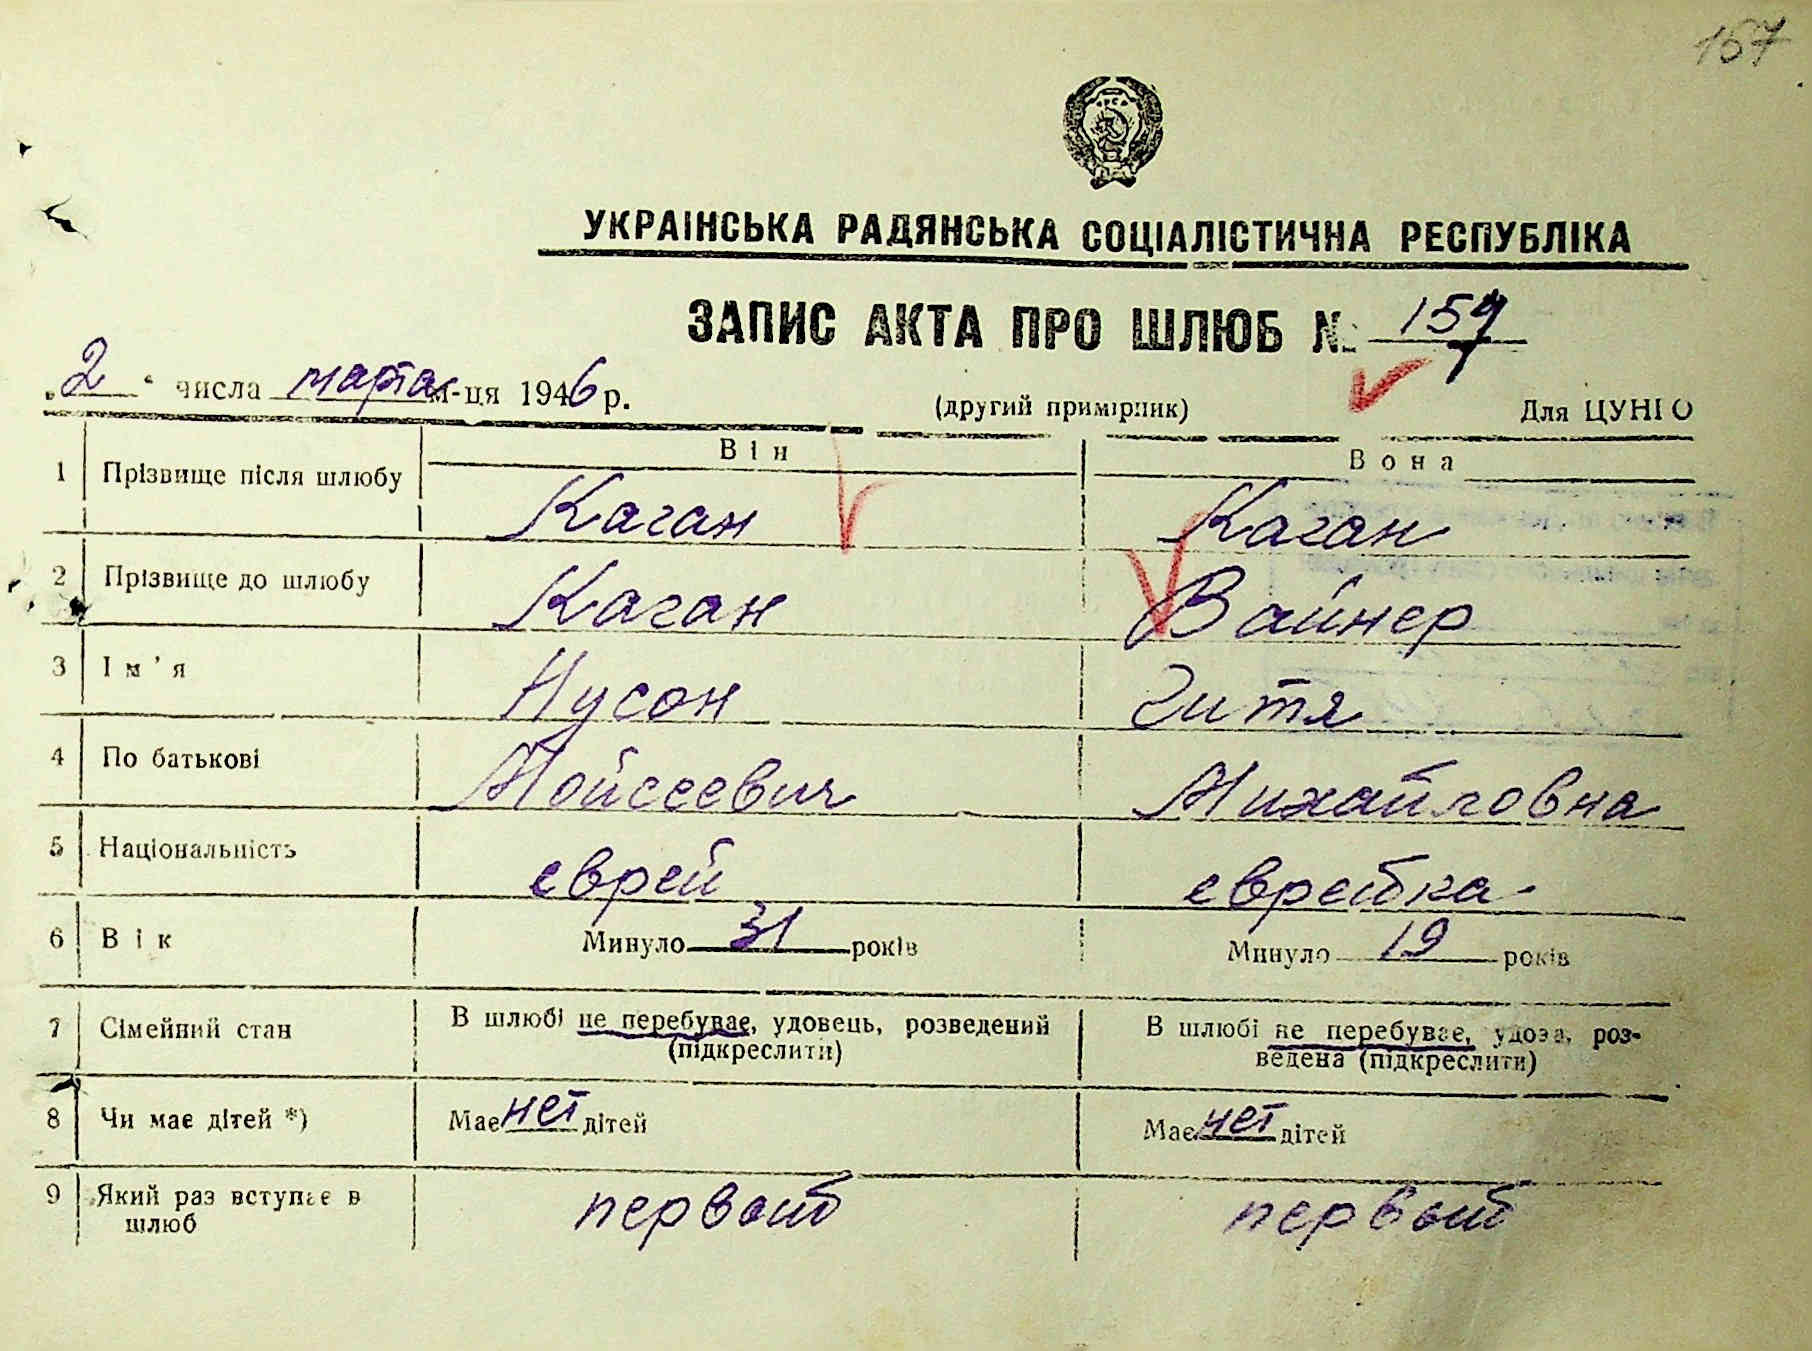 167
УКРАІНСЬКА РАДЯНСЬКА СОЦІАЛІСТИЧНА РЕСПУБЛІКА
ЗАПИС АКТА ПРО ШЛЮБ № 157
„2“ числа марта м-ця 1946 р. (другий примірник) Для ЦУНГО
Він Вона
1 Прізвище після шлюбу Каган Каган
2 Прізвище до шлюбу Каган Вайнер
3 Ім'я Нусон Гитя
4 По батькові Мойсеевич Михайловна
5 Національність еврей еврейка
6 Вік Минуло 31 років Минуло 19 років
7 Сімейний стан В шлюбі не перебуває, удовець, розведений (підкреслити) В шлюбі не перебуває, удова, роз-
ведена (підкреслити)
8 Чи має дітей *) Має нет дітей Має нет дітей
9 Який раз вступає в шлюб первый первый